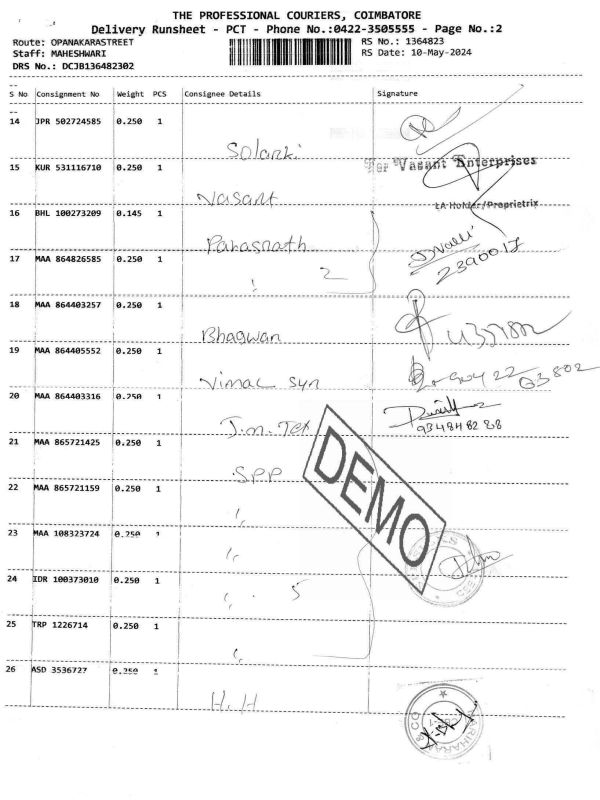 THE PROFESSIONAL COURIERS, COIMBATORE
Delivery Runsheet - PCT - Phone No.:0422-3505555 - Page No.:2
Route: OPANAKARASTREET
RS No.: 1364823
Staff: MAHESHWARI
RS Date: 10-May-2024
DRS No.: DCJB136482302
S No Consignment No Weight PCS Consignee Details Signature
14 JPR 502724585 0.250 1 Solanki
15 KUR 531116710 0.250 1 Vasant
For Vasant Enterprises
LA Holder/Proprietrix
16 BHL 100273209 0.145 1 Parasnath
17 MAA 864826585 0.250 1 " 2
2390017
18 MAA 864403257 0.250 1 Bhagwan
19 MAA 864405552 0.250 1 Vimal Syn
20 MAA 864403316 0.250 1 J.m. Tex
21 MAA 865721425 0.250 1 SPP
22 MAA 865721159 0.250 1 "
23 MAA 108323724 0.250 1 "
24 IDR 100373010 0.250 1 " 5
25 TRP 1226714 0.250 1 "
26 ASD 3536727 0.250 1 H.H
DEMO